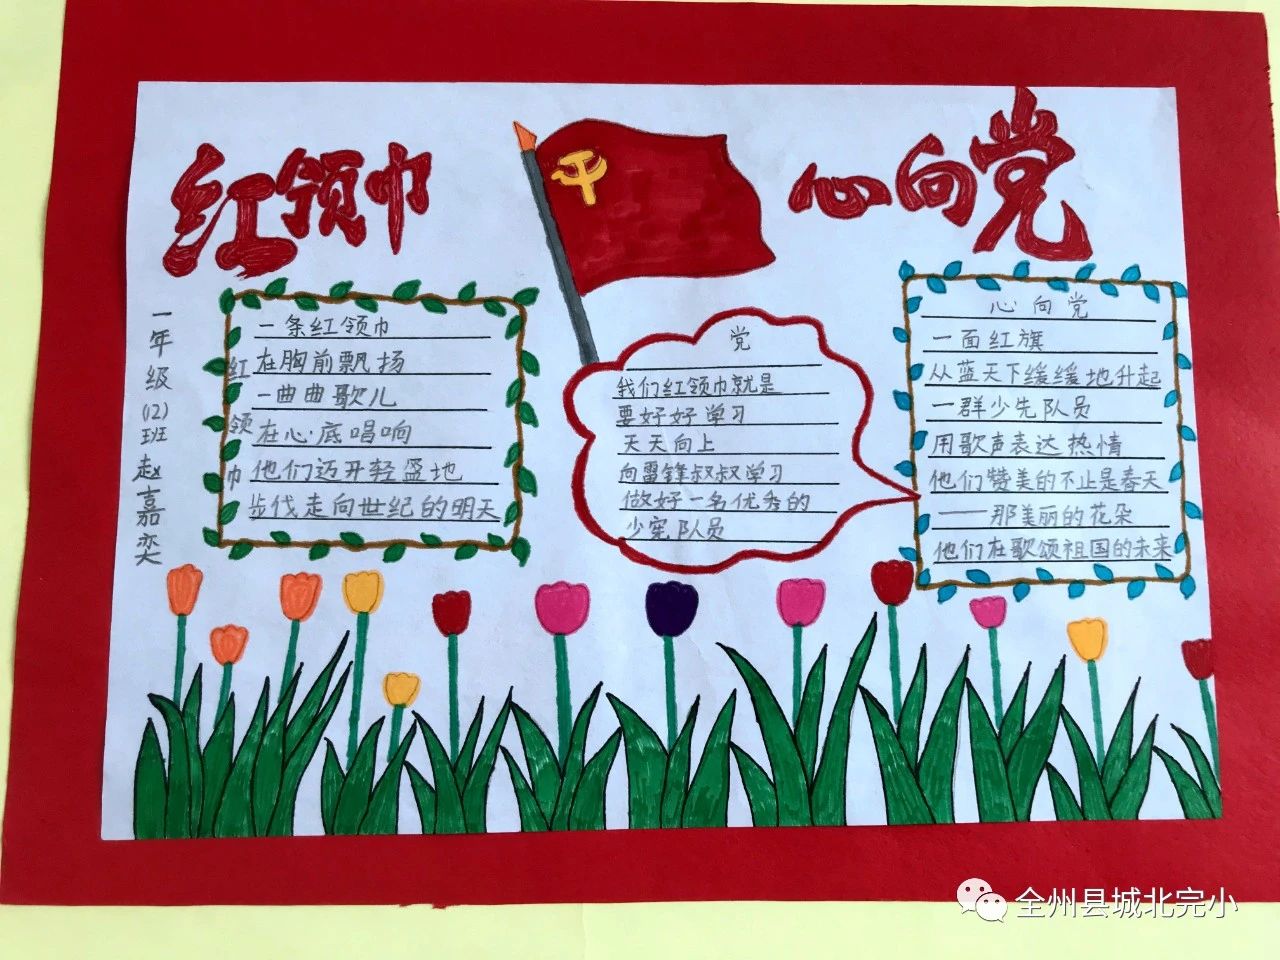 红领巾
心向党
一年级(12)班赵嘉奕
红领巾
一条红领巾
在胸前飘扬
一曲曲歌儿
在心底唱响
他们迈开轻盈地
步伐走向世纪的明天
党
我们红领巾就是
要好好学习
天天向上
向雷锋叔叔学习
做好一名优秀的
少宪队员
心向党
一面红旗
从蓝天下缓缓地升起
一群少先队员
用歌声表达热情
他们赞美的不止是春天
——那美丽的花朵
他们在歌颂祖国的未来
全州县城北完小